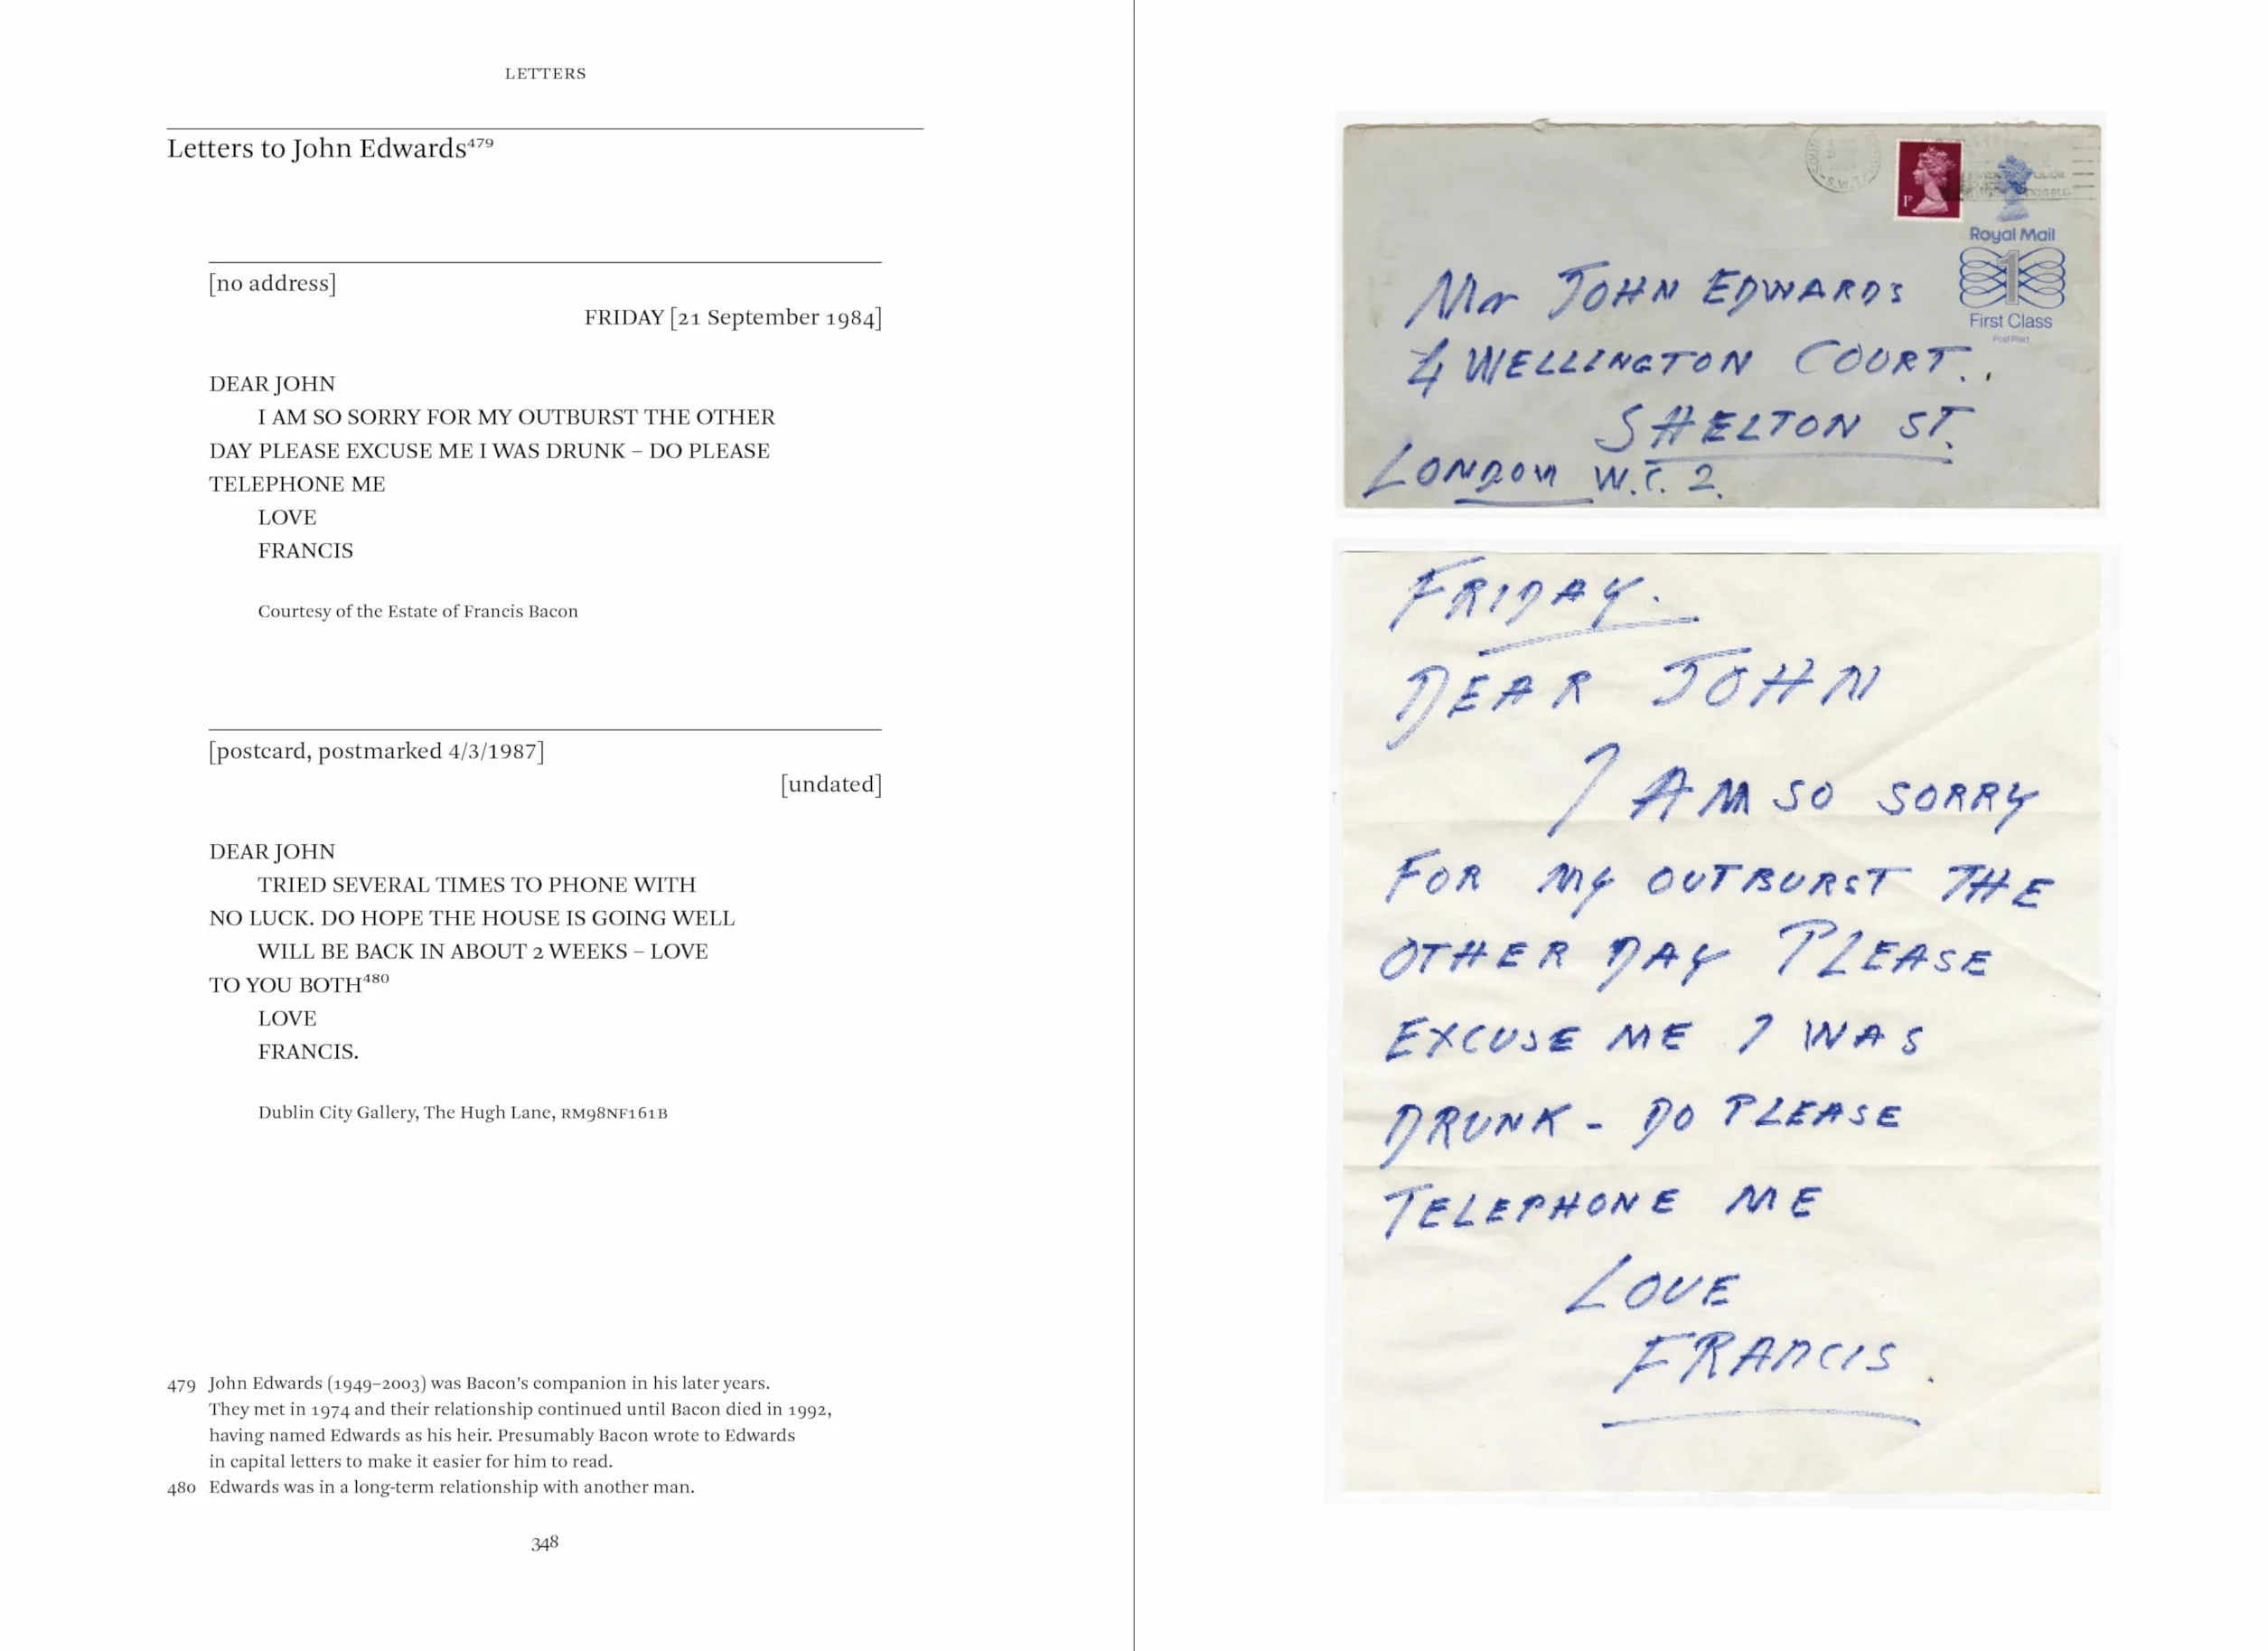 LETTERS
Letters to John Edwards⁴⁷⁹
[no address]
FRIDAY [21 September 1984]
DEAR JOHN
I AM SO SORRY FOR MY OUTBURST THE OTHER
DAY PLEASE EXCUSE ME I WAS DRUNK – DO PLEASE
TELEPHONE ME
LOVE
FRANCIS
Courtesy of the Estate of Francis Bacon
[postcard, postmarked 4/3/1987]
[undated]
DEAR JOHN
TRIED SEVERAL TIMES TO PHONE WITH
NO LUCK. DO HOPE THE HOUSE IS GOING WELL
WILL BE BACK IN ABOUT 2 WEEKS – LOVE
TO YOU BOTH⁴⁸⁰
LOVE
FRANCIS.
Dublin City Gallery, The Hugh Lane, RM98NF161B
479 John Edwards (1949–2003) was Bacon's companion in his later years.
They met in 1974 and their relationship continued until Bacon died in 1992,
having named Edwards as his heir. Presumably Bacon wrote to Edwards
in capital letters to make it easier for him to read.
480 Edwards was in a long-term relationship with another man.
348
1P
Royal Mail
1
First Class
Post Paid
Mr JOHN EDWARDS
4 WELLINGTON COURT.
SHELTON ST.
LONDON W.C.2.
FRIDAY.
DEAR JOHN
I AM SO SORRY
FOR MY OUTBURST THE
OTHER DAY PLEASE
EXCUSE ME I WAS
DRUNK - DO PLEASE
TELEPHONE ME
LOVE
FRANCIS.